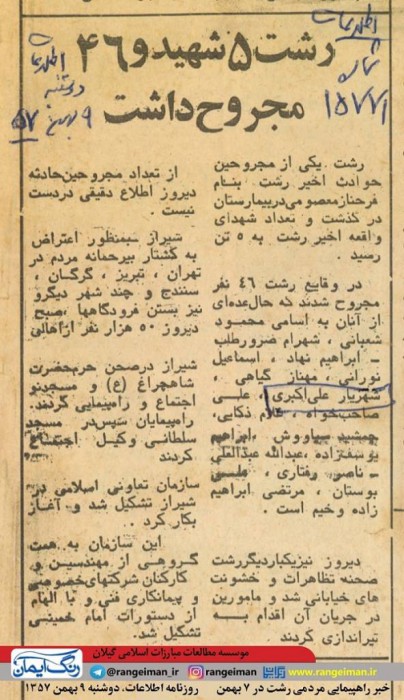 اطلاعات
شماره
۱۵۷۷۱
اطلاعات
دوشنبه
۹ بهمن ۵۷
رشت ۵ شهید و ۴۶
مجروح داشت
رشت یکی از مجروحین
حوادث اخیر رشت بنام
فرحناز معصومی در بیمارستان
در گذشت و تعداد شهدای
واقعه اخیر رشت به ۵ تن
رسید .
در وقایع رشت ۴۶ نفر
مجروح شدند که حال عده‌ای
از آنان به اسامی محمود
شعبانی ، شهرام ضرورطلب
ـ ابراهیم نهاد ، اسماعیل
نورانی ، مهناز گیاهی ،
شهریار علی‌اکبری ، علی
صاحب‌خواه ، غلام ذکایی،
جمشید سیاووش ، ابراهیم
یوسف‌زاده ، عبدالله عبدالعلی
ـ ناصر رفتاری ، علی
بوستان ، مرتضی ابراهیم
زاده وخیم است .
دیروز نیز یکبار دیگر رشت
صحنه تظاهرات و خشونت
های خیابانی شد و مامورین
در جریان آن اقدام به
تیراندازی کردند
از تعداد مجروحین حادثه
دیروز اطلاع دقیقی در دست
نیست .
شیراز بمنظور اعتراض
به کشتار بیرحمانه مردم در
تهران ، تبریز ، گرگان ،
سنندج و چند شهر دیگر و
نیز بستن فرودگاهها ، صبح
دیروز ۵۰ هزار نفر از اهالی
شیراز در صحن حرم حضرت
شاهچراغ (ع) و مسجد نو
اجتماع و راهپیمایی کردند.
راهپیمایان سپس در مسجد
سلطانی وکیل اجتماع
کردند
سازمان تعاونی اسلامی در
شیراز تشکیل شد و آغاز
بکار کرد .
این سازمان به همت
گروهی از مهندسین و
کارکنان شرکتهای خصوصی
و پیمانکاری فنی و با الهام
از دستورات امام خمینی
تشکیل شد.
موسسه مطالعات مبارزات اسلامی گیلان
رنگ ایمان
@rangeiman_ir @rangeiman_ir rangeiman.ir
خبر راهپیمایی مردمی رشت در ۷ بهمن روزنامه اطلاعات، دوشنبه ۹ بهمن ۱۳۵۷